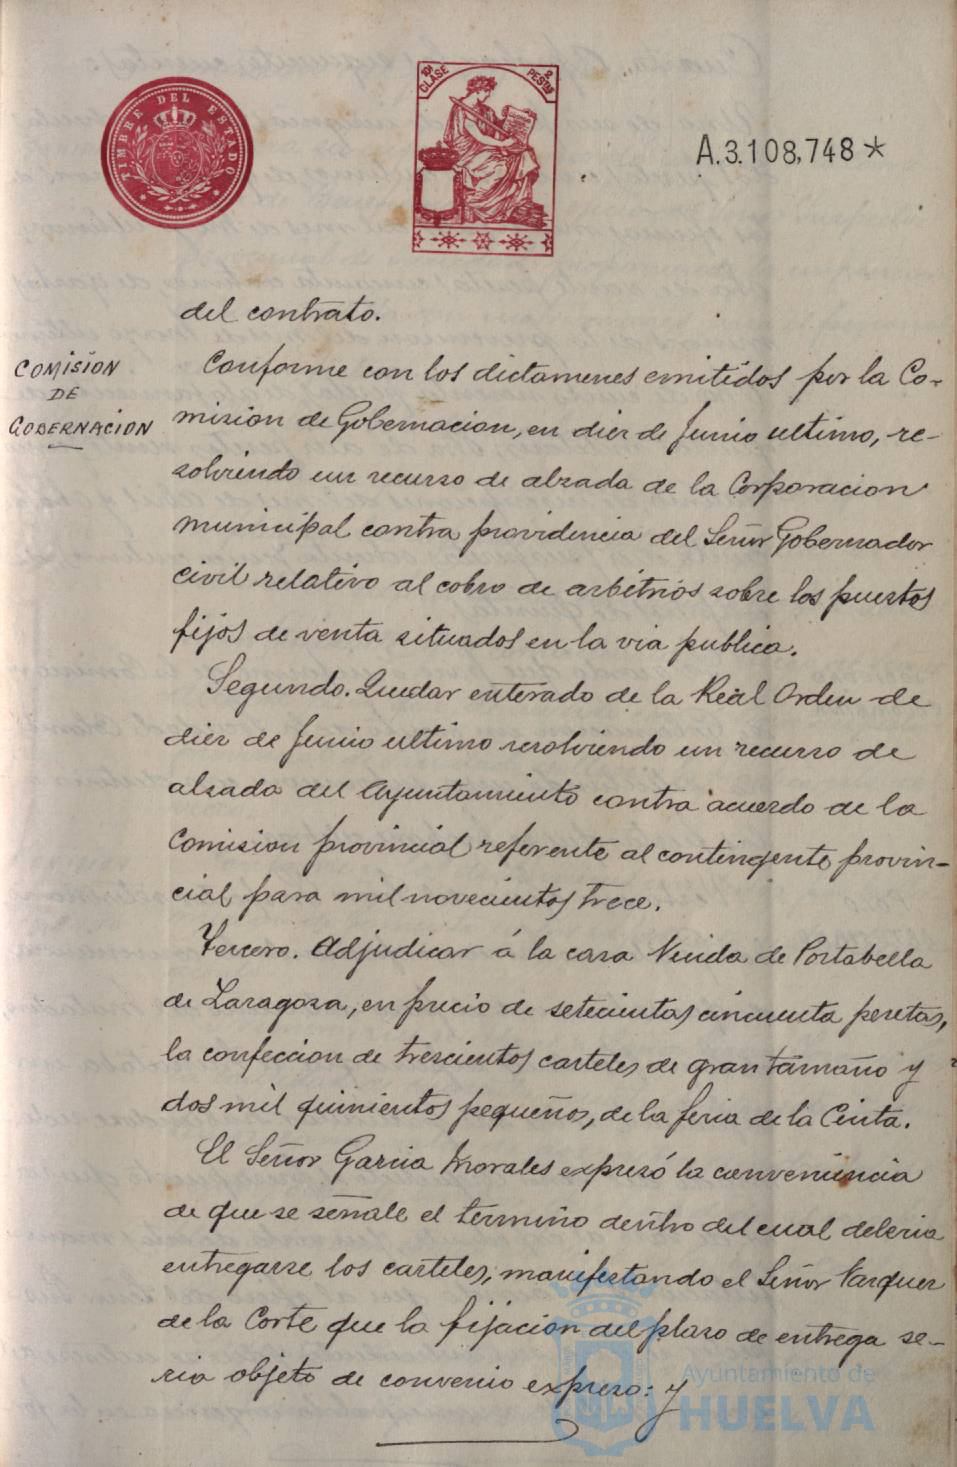 TIMBRE DEL ESTADO
10ª CLASE
2 PESTAS
A.3.108,748*
del contrato.
COMISION
DE
GOBERNACION
Conforme con los dictamenes emitidos por la Co-
mision de Gobernacion, en diez de Junio ultimo, re-
solviendo un recurso de alzada de la Corporacion
municipal contra providencia del Señor Gobernador
civil relativo al cobro de arbitrios sobre los puestos
fijos de venta situados en la via publica.
Segundo. Quedar enterado de la Real Orden de
diez de Junio ultimo resolviendo un recurso de
alzada del Ayuntamiento contra acuerdo de la
Comision provincial referente al contingente provin-
cial para mil novecientos trece.
Tercero. Adjudicar á la casa Viuda de Portabella
de Zaragoza, en precio de setecientas cincuenta pesetas,
la confeccion de trescientos carteles de gran tamaño y
dos mil quinientos pequeños, de la feria de la Cinta.
El Señor Garcia Morales expresó la conveniencia
de que se señale el termino dentro del cual deberia
entregarse los carteles, manifestando el Señor Vazquez
de la Corte que la fijacion del plazo de entrega se-
ria objeto de convenio expreso: y
Ayuntamiento de
HUELVA